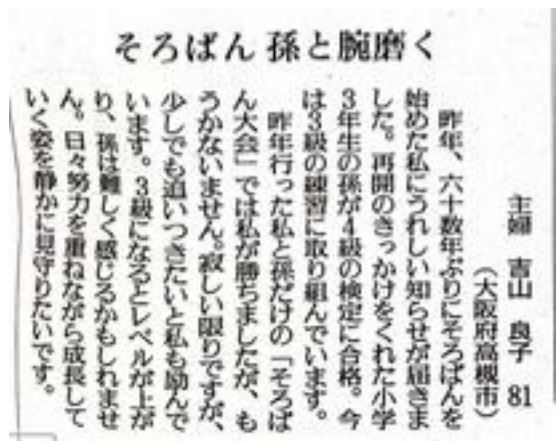 そろばん 孫と腕磨く
主婦 吉山 良子 81
(大阪府高槻市)
昨年、六十数年ぶりにそろばんを
始めた私にうれしい知らせが届きま
した。再開のきっかけをくれた小学
3年生の孫が4級の検定に合格。今
は3級の練習に取り組んでいます。
昨年行った私と孫だけの「そろば
ん大会」では私が勝ちましたが、も
うかないません。寂しい限りですが、
少しでも追いつきたいと私も励んで
います。3級になるとレベルが上が
り、孫は難しく感じるかもしれませ
ん。日々努力を重ねながら成長して
いく姿を静かに見守りたいです。